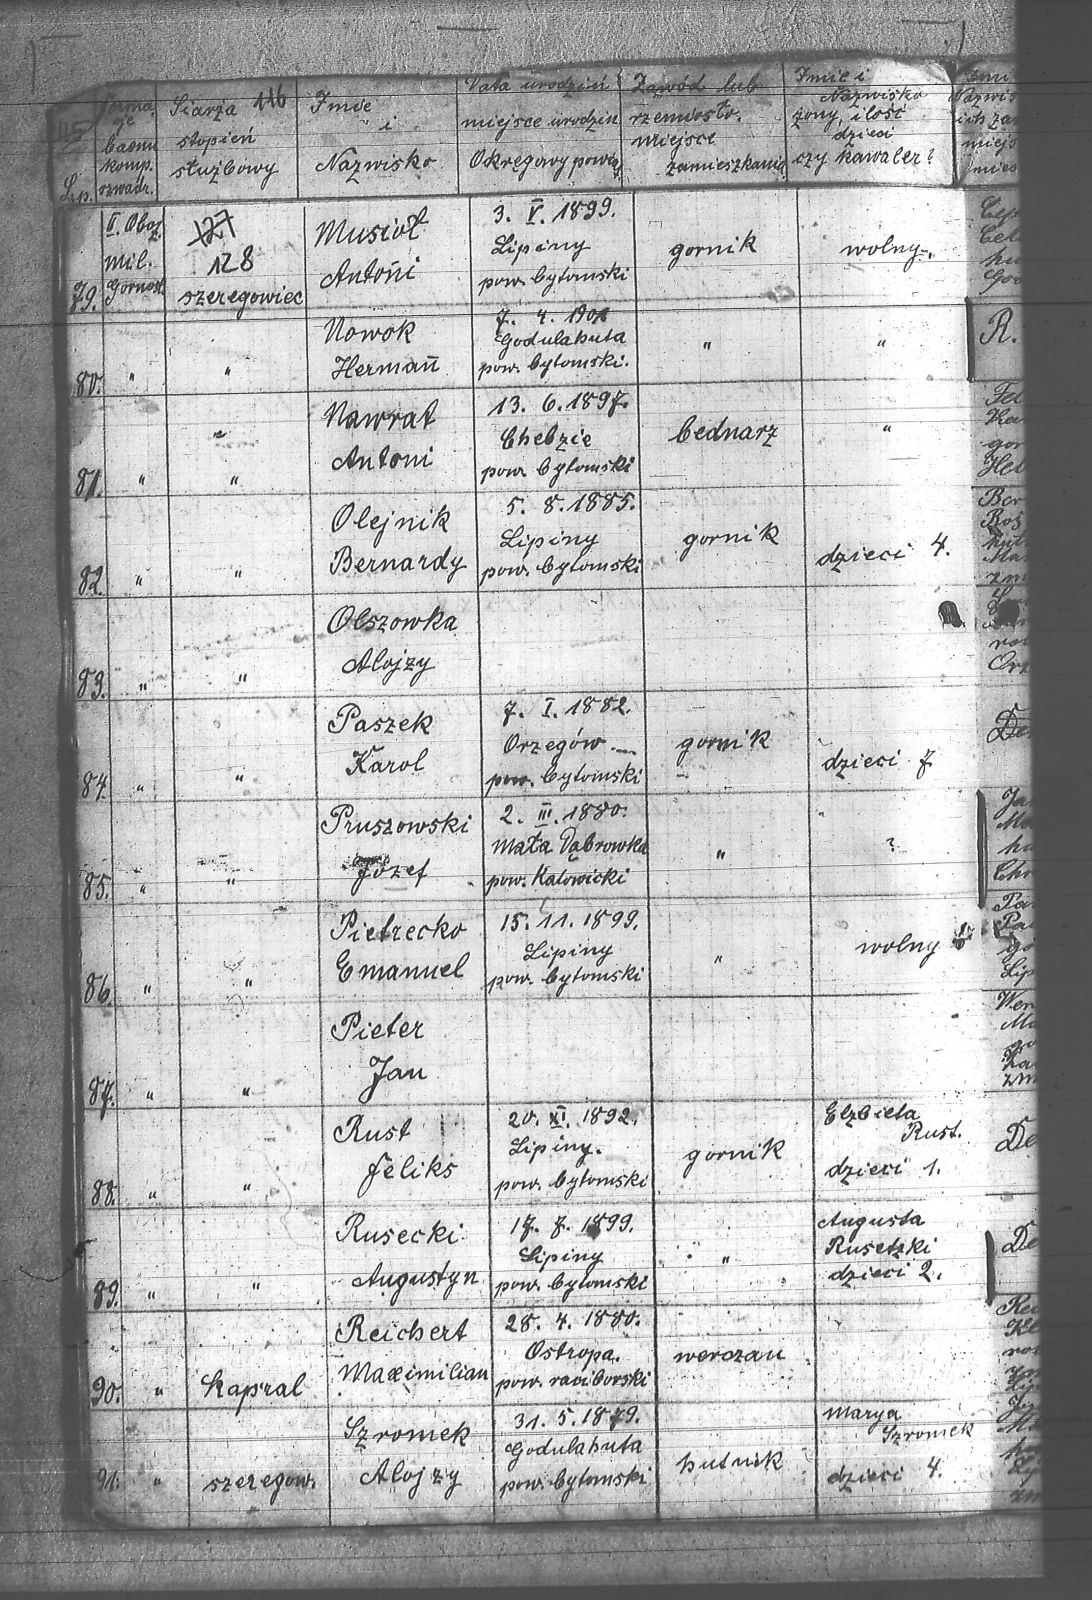 Lp.
baonu
komp.
szwadr.
Szarża 116
stopień
służbowy
Imie
i
Nazwisko
Data urodzin
miejsce urodzin
Okręgowy powiat
Zawód lub
rzemiosło.
miejsce
zamieszkania
Imie i
Nazwisko
żony, ilość
dzieci
czy kawaler?
79.
II. Oboz.
mil.
Gornośl.
127
128
szeregowiec
Musioł
Antoni
3. V. 1899.
Lipiny
pow. bytomski
gornik
wolny.
80.
"
"
Nowok
Hermañ
7. 4. 1901
Godulahuta
pow. bytomski.
"
"
R.
81.
"
"
"
Nawrat
Antoni
13. 6. 1897.
Chebzie
pow. bytomski
bednarz
"
82.
"
"
Olejnik
Bernardy
5. 8. 1885.
Lipiny
pow. bytomski
gornik
dzieci 4.
83.
"
"
Olszowka
Alojzy
84.
"
"
Paszek
Karol
7. I. 1882.
Orzegów
pow. bytomski
gornik
dzieci 7
85.
"
"
Pruszowski
Józef
2. III. 1880.
Mała Dąbrowka
pow. Katowicki
"
?
86.
"
"
Pietrecko
Emanuel
15. 11. 1899.
Lipiny
pow. bytomski
"
wolny
87.
"
"
Pieter
Jan
88.
"
"
Rust
Feliks
20. XI. 1892.
Lipiny.
pow. bytomski
gornik
Elzbieta
Rust.
dzieci 1.
89.
"
"
Rusecki
Augustyn
17. 7. 1899.
Lipiny
pow. bytomski
"
Augusta
Rusetzki
dzieci 2.
90.
"
Kapral
Reichert
Maximilian
28. 4. 1880.
Ostropa.
pow. raciborski
werczau
91.
"
szeregow.
Szromek
Alojzy
31. 5. 1879.
Godulahuta
pow. bytomski
hutnik
Marya
Szromek
dzieci 4.